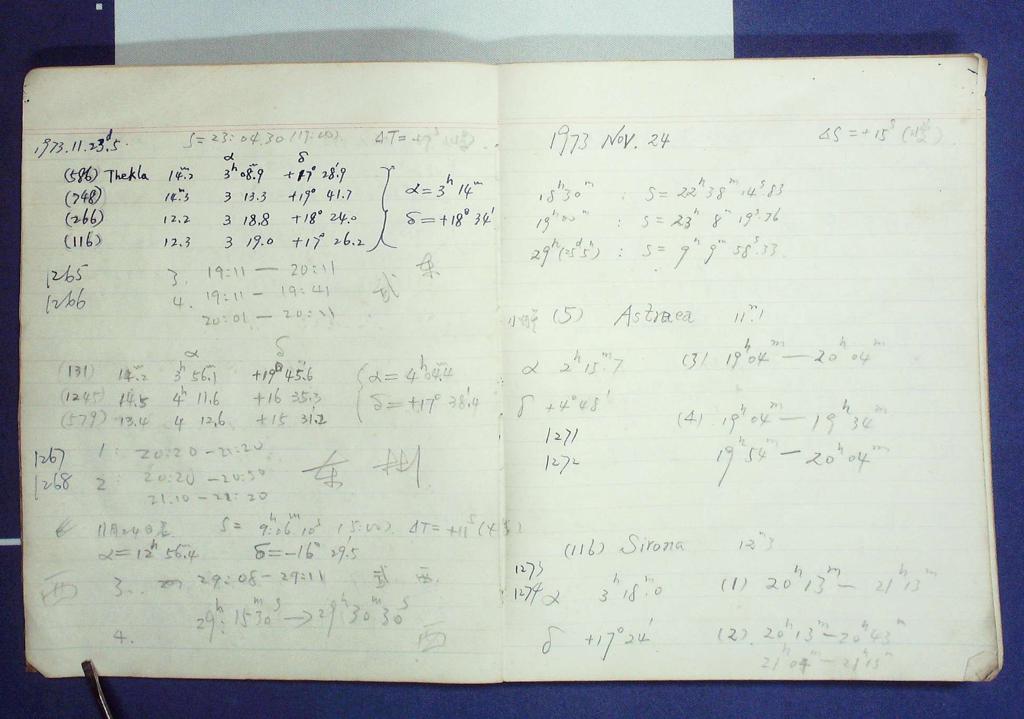 1973.11.23ᵈ.5 S=23:04.30 (19:00) ΔT=
α δ
(586) Thekla 14.2 3ʰ 08.9 +17° 28.9
(748) 14.3 3 13.3 +19° 41.7
(266) 12.2 3 18.8 +18° 24.0
(116) 12.3 3 19.0 +17° 26.2
α=3ʰ 14ᵐ
δ=+18° 34'
1265 3. 19:11 — 20:11 東
1266 4. 19:11 — 19:41
20:01 — 20:11
α δ
(131) 14.2 3ʰ 56.1 +19° 45.6 α=4ʰ 04.4
(1245) 14.5 4ʰ 11.6 +16 35.3 δ=+17° 38.4
(579) 13.4 4 12.6 +15 31.2
1267 1: 20:20 — 21:20
1268 2: 20:20 — 20:50 東
21:10 — 21:20
11月24日 S= 9:06ᵐ 10ˢ (5:00) ΔT=+11ˢ
α=12ʰ 56.4 δ=-16° 29.5
西 3. 29:08 — 29:11 西
29ʰ:15ᵐ30ˢ → 29ʰ30ᵐ30ˢ
4. 西
1973 Nov. 24 ΔS=+15ˢ
18ʰ30ᵐ : S= 22ʰ 38ᵐ 14ˢ.83
19ʰ00ᵐ : S= 23ʰ 8ᵐ 19ˢ.76
29ʰ(25ᵈ5ʰ) : S= 9ʰ 9ᵐ 58ˢ.33
(5) Astraea 11ᵐ.1
α 2ʰ 15ᵐ.7 (3) 19ʰ04ᵐ — 20ʰ04ᵐ
δ +4° 48' (4) 19ʰ04ᵐ — 19ʰ34ᵐ
1271
1272 19ʰ54ᵐ — 20ʰ04ᵐ
(116) Sirona 12ᵐ3
1273
1274 α 3ʰ 18ᵐ.0 (1) 20ʰ13ᵐ — 21ʰ13ᵐ
δ +17° 24' (2) 20ʰ13ᵐ — 20ʰ43ᵐ
21ʰ04ᵐ — 21ʰ13ᵐ